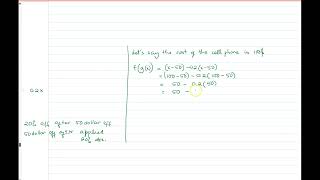 Let's say the cost of the cell phone is 100$
f(g(x)) = (x-50) - 0.2(x-50)
= (100-50) - 0.2(100-50)
= 50 - 0.2(50)
= 50 -
0.2x
20% off after 50 dollar off
50 dollar off after applied
20% disc.